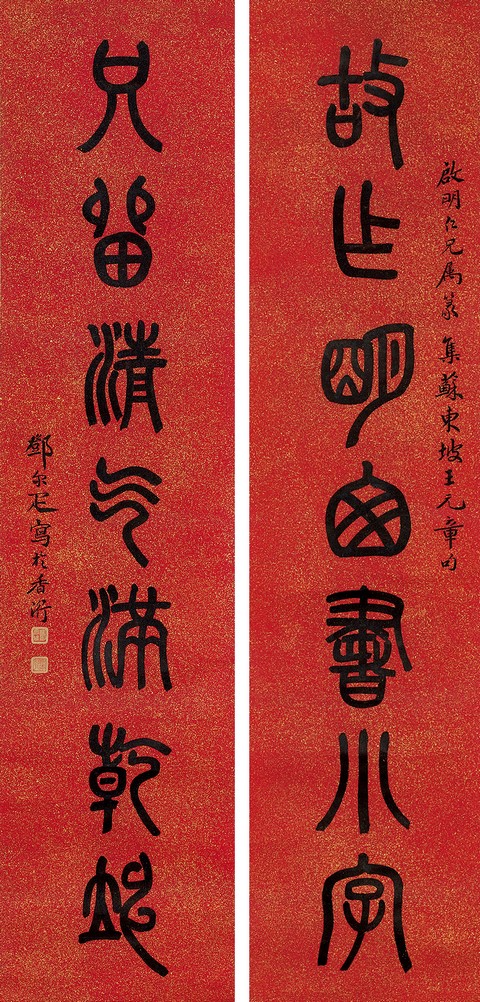 啟明仁兄屬篆 集蘇東坡王元章句
故乍明囱書小字
只留清气滿乾坤
鄧尔疋寫於香